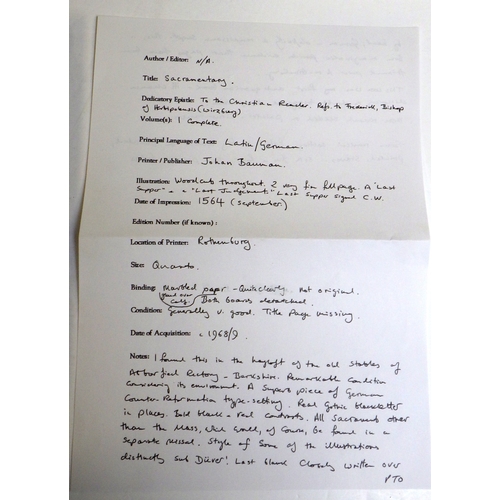 Author / Editor: N/A.
Title: Sacramentary.
Dedicatory Epistle: To the Christian Reader. Refs. to Frederick, Bishop
of Herbipolensis (Wirzburg)
Volume(s): 1 Complete.
Principal Language of Text: Latin/German
Printer / Publisher: Johan Bauman.
Illustration: Woodcuts throughout. 2 very fine fullpage. A "Last
Supper" + a "Last Judgement". Last Supper signed C.W.
Date of Impression: 1564 (September)
Edition Number (if known) :
Location of Printer: Rothenburg.
Size: Quarto.
Binding: Marbled paper - Quite clearly not original.
over calf Both boards detached.
Condition: Generally v. good. Title Page missing.
Date of Acquisition: c 1968/9
Notes: I found this in the hayloft of the old stables of
Arborfield Rectory - Berkshire. Remarkable condition
considering its environment. A Superb piece of German
Counter Reformation type-setting. Real Gothic blackletter
in places. Bold black + red contrasts. All Sacraments other
than the Mass, which would, of course, be found in a
separate missal. Style of some of the illustrations
distinctly sub Dürer! Last blank closely written over
PTO